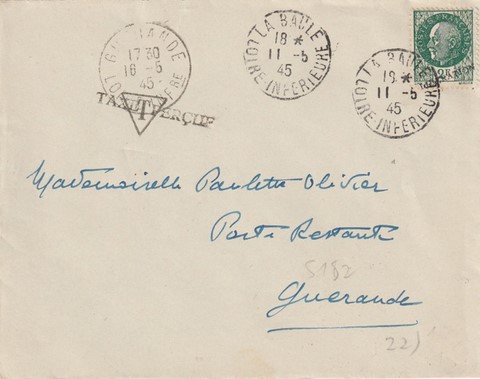 GUERANDE
17 30
16 - 5
45
LOIRE INFRE
TAXE PERÇUE
T
LA BAULE
18 *
11 - 5
45
LOIRE-INFERIEURE
LA BAULE
19 *
11 - 5
45
LOIRE-INFERIEURE
Mademoiselle Paulette Olivier
Poste Restante
5182
Guérande
22)